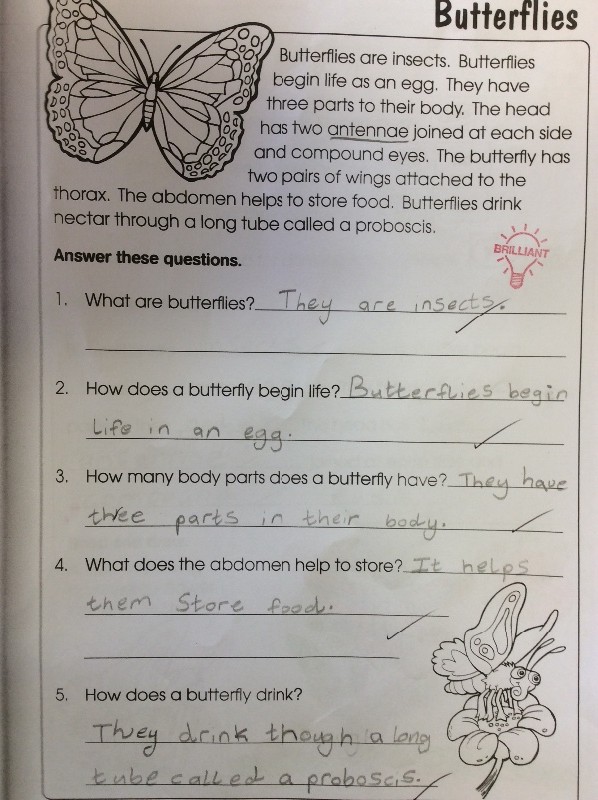 Butterflies
Butterflies are insects. Butterflies
begin life as an egg. They have
three parts to their body. The head
has two antennae joined at each side
and compound eyes. The butterfly has
two pairs of wings attached to the
thorax. The abdomen helps to store food. Butterflies drink
nectar through a long tube called a proboscis.
BRILLIANT
Answer these questions.
1. What are butterflies? They are insects.
2. How does a butterfly begin life? Butterflies begin
Life in an egg.
3. How many body parts does a butterfly have? They have
three parts in their body.
4. What does the abdomen help to store? It helps
them Store food.
5. How does a butterfly drink?
They drink though a long
tube called a proboscis.